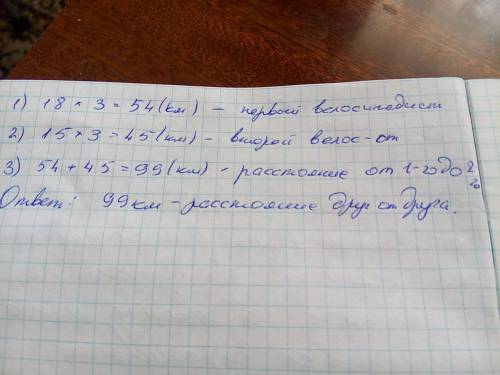 1) 18 × 3 = 54 (км) – первый велосипедист
2) 15 × 3 = 45 (км) – второй велос-ст
3) 54 + 45 = 99 (км) – расстояние от 1-го до 2-го
Ответ: 99 км – расстояние друг от друга.